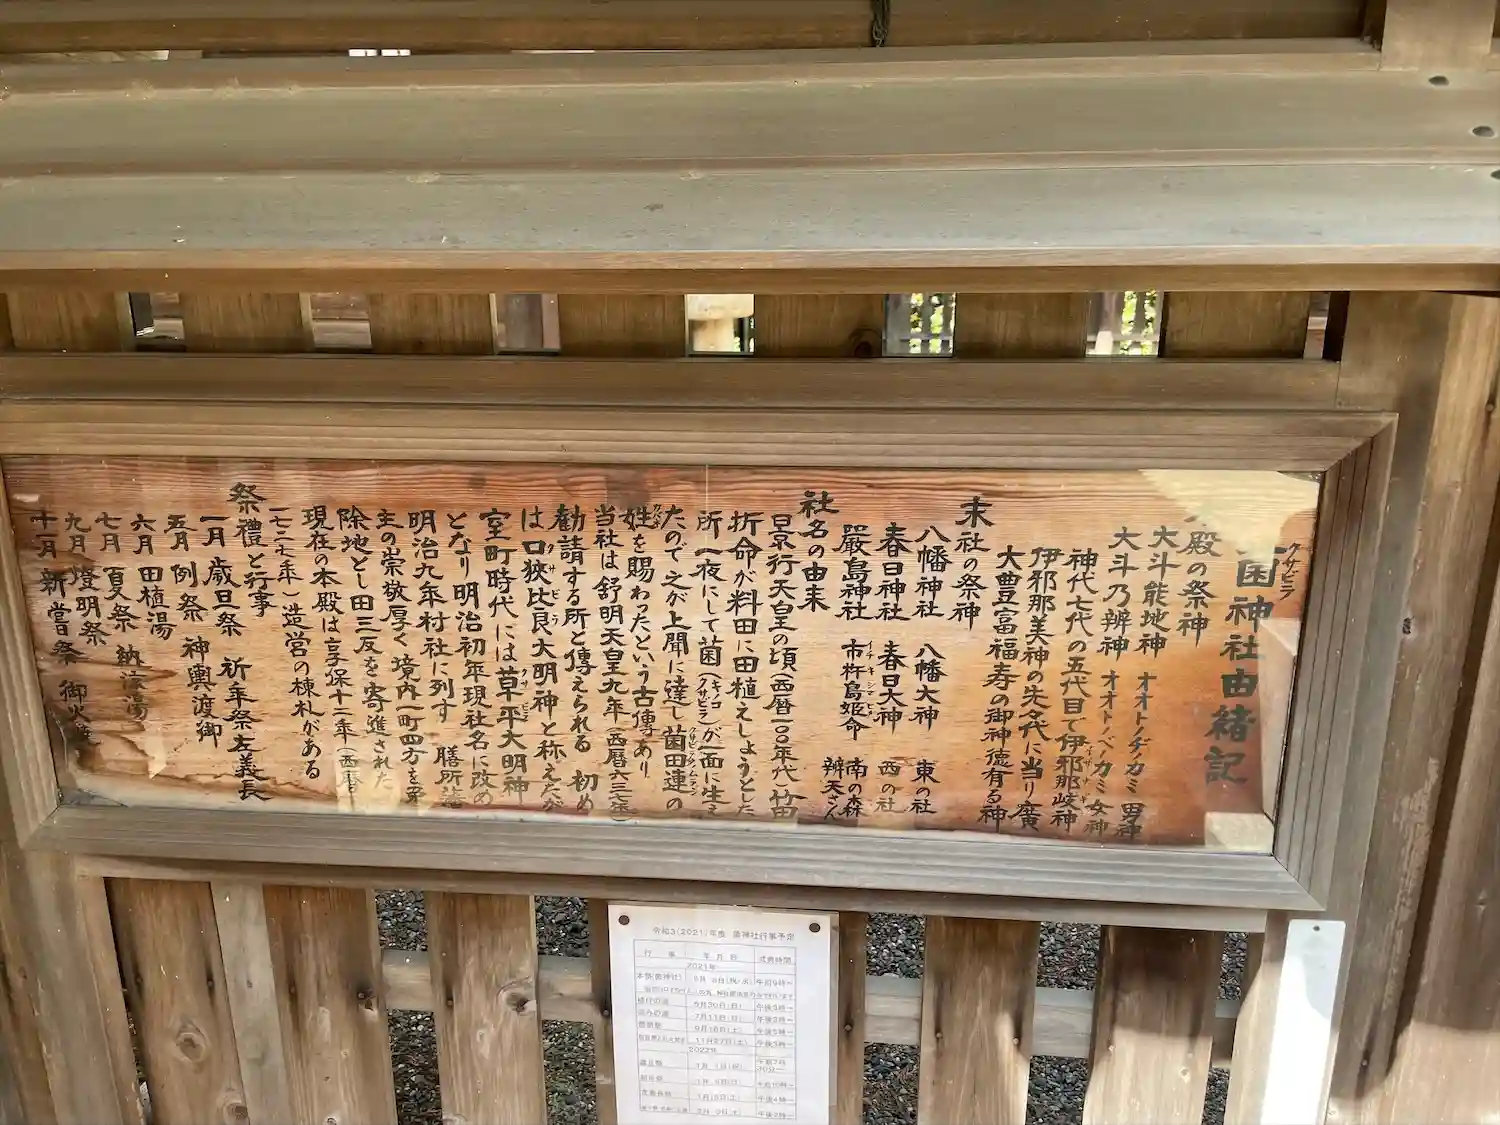 クサビラ
菌神社由緒記
殿の祭神
大斗能地神 オオトノヂカミ 男神
大斗乃辨神 オオトノベノカミ 女神
神代七代の五代目で伊邪那岐神
伊邪那美神の先代に当り廣
大豊富福寿の御神徳有る神
末社の祭神
八幡神社 八幡大神 東の社
春日神社 春日大神 西の社
嚴島神社 市杵島姫命 南の森
辨天さん
社名の由来
景行天皇の頃(西暦一〇〇年代)竹田
折命が料田に田植えしようとした
所一夜にして菌(キノコ)(クサビラ)が一面に生え
たので之が上聞に達し菌田連の
姓を賜わったという古傳あり
当社は舒明天皇九年(西暦六三七年)
勧請する所と傳えられる 初め
は口狭比良大明神と称えたが
室町時代には草平大明神
となり明治初年現社名に改め
明治九年村社に列す 膳所藩
主の崇敬厚く境内一町四方を
除地とし田三反を寄進された
現在の本殿は享保十二年(西暦
一七二七年)造営の棟札がある
祭禮と行事
一月 歳旦祭 祈年祭左義長
五月 例祭 神輿渡御
六月 田植湯
七月 夏祭 納涼湯
九月 燈明祭
十一月 新嘗祭 御火焚
令和3(2021)年度 菌神社行事予定
行 事 年月日 式典時間
2021年
5月30日(日) 午後3時～
7月11日(日)
9月18日(土) 午後5時～
11月27日(土) 午後3時～
2022年